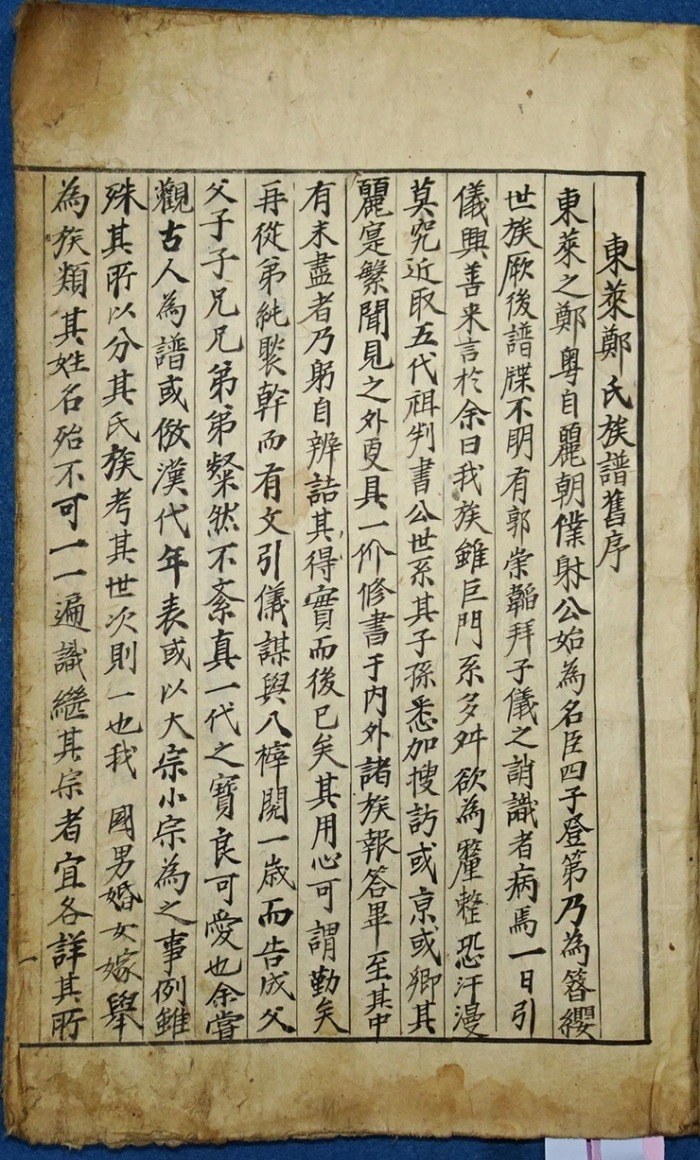 東萊鄭氏族譜舊序
東萊之鄭粤自麗朝僕射公始為名臣四子登第乃為簪纓
世族厥後譜牒不明有郭崇韜拜子儀之誚識者病焉一日引
儀興善来言於余曰我族雖巨門系多舛欲為釐整恐汗漫
莫究近取五代祖判書公世系其子孫悉加搜訪或京或鄉其
麗寔繁聞見之外更具一价修書于内外諸族報答畢至其中
有未盡者乃躬自辨詰其得實而後已矣其用心可謂勤矣
再從弟純聚幹而有文引儀謀與入梓閱一歲而告成父
父子子兄兄弟弟粲然不紊真一代之寶良可愛也余嘗
觀古人為譜或倣漢代年表或以大宗小宗為之事例雖
殊其所以分其氏族考其世次則一也我 國男婚女嫁舉
為族類其姓名殆不可一一遍識繼其宗者宜各詳其所
一